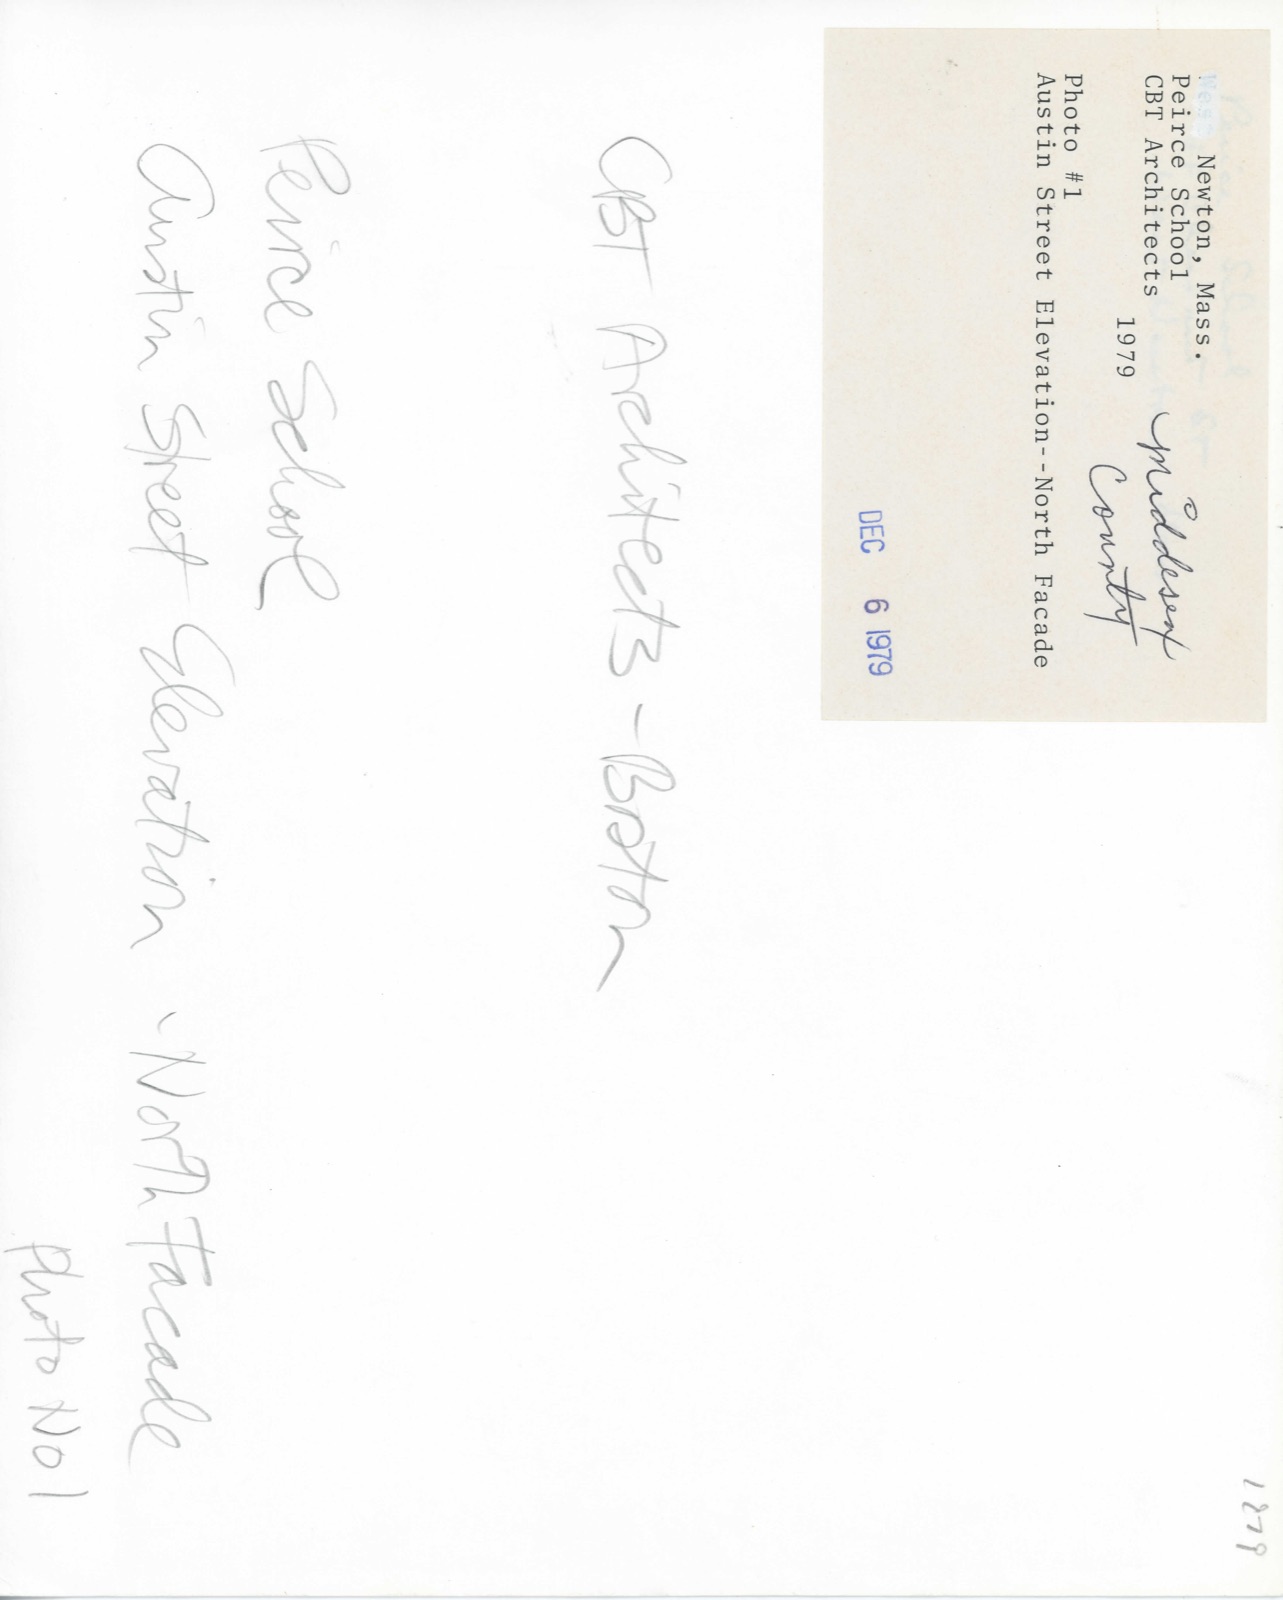 Newton, Mass.
Peirce School
CBT Architects
1979
Middlesex
County
Photo #1
Austin Street Elevation--North Facade
DEC 6 1979
CBT Architects - Boston
Peirce School
Austin Street Elevation - North Facade
Photo No 1
1279